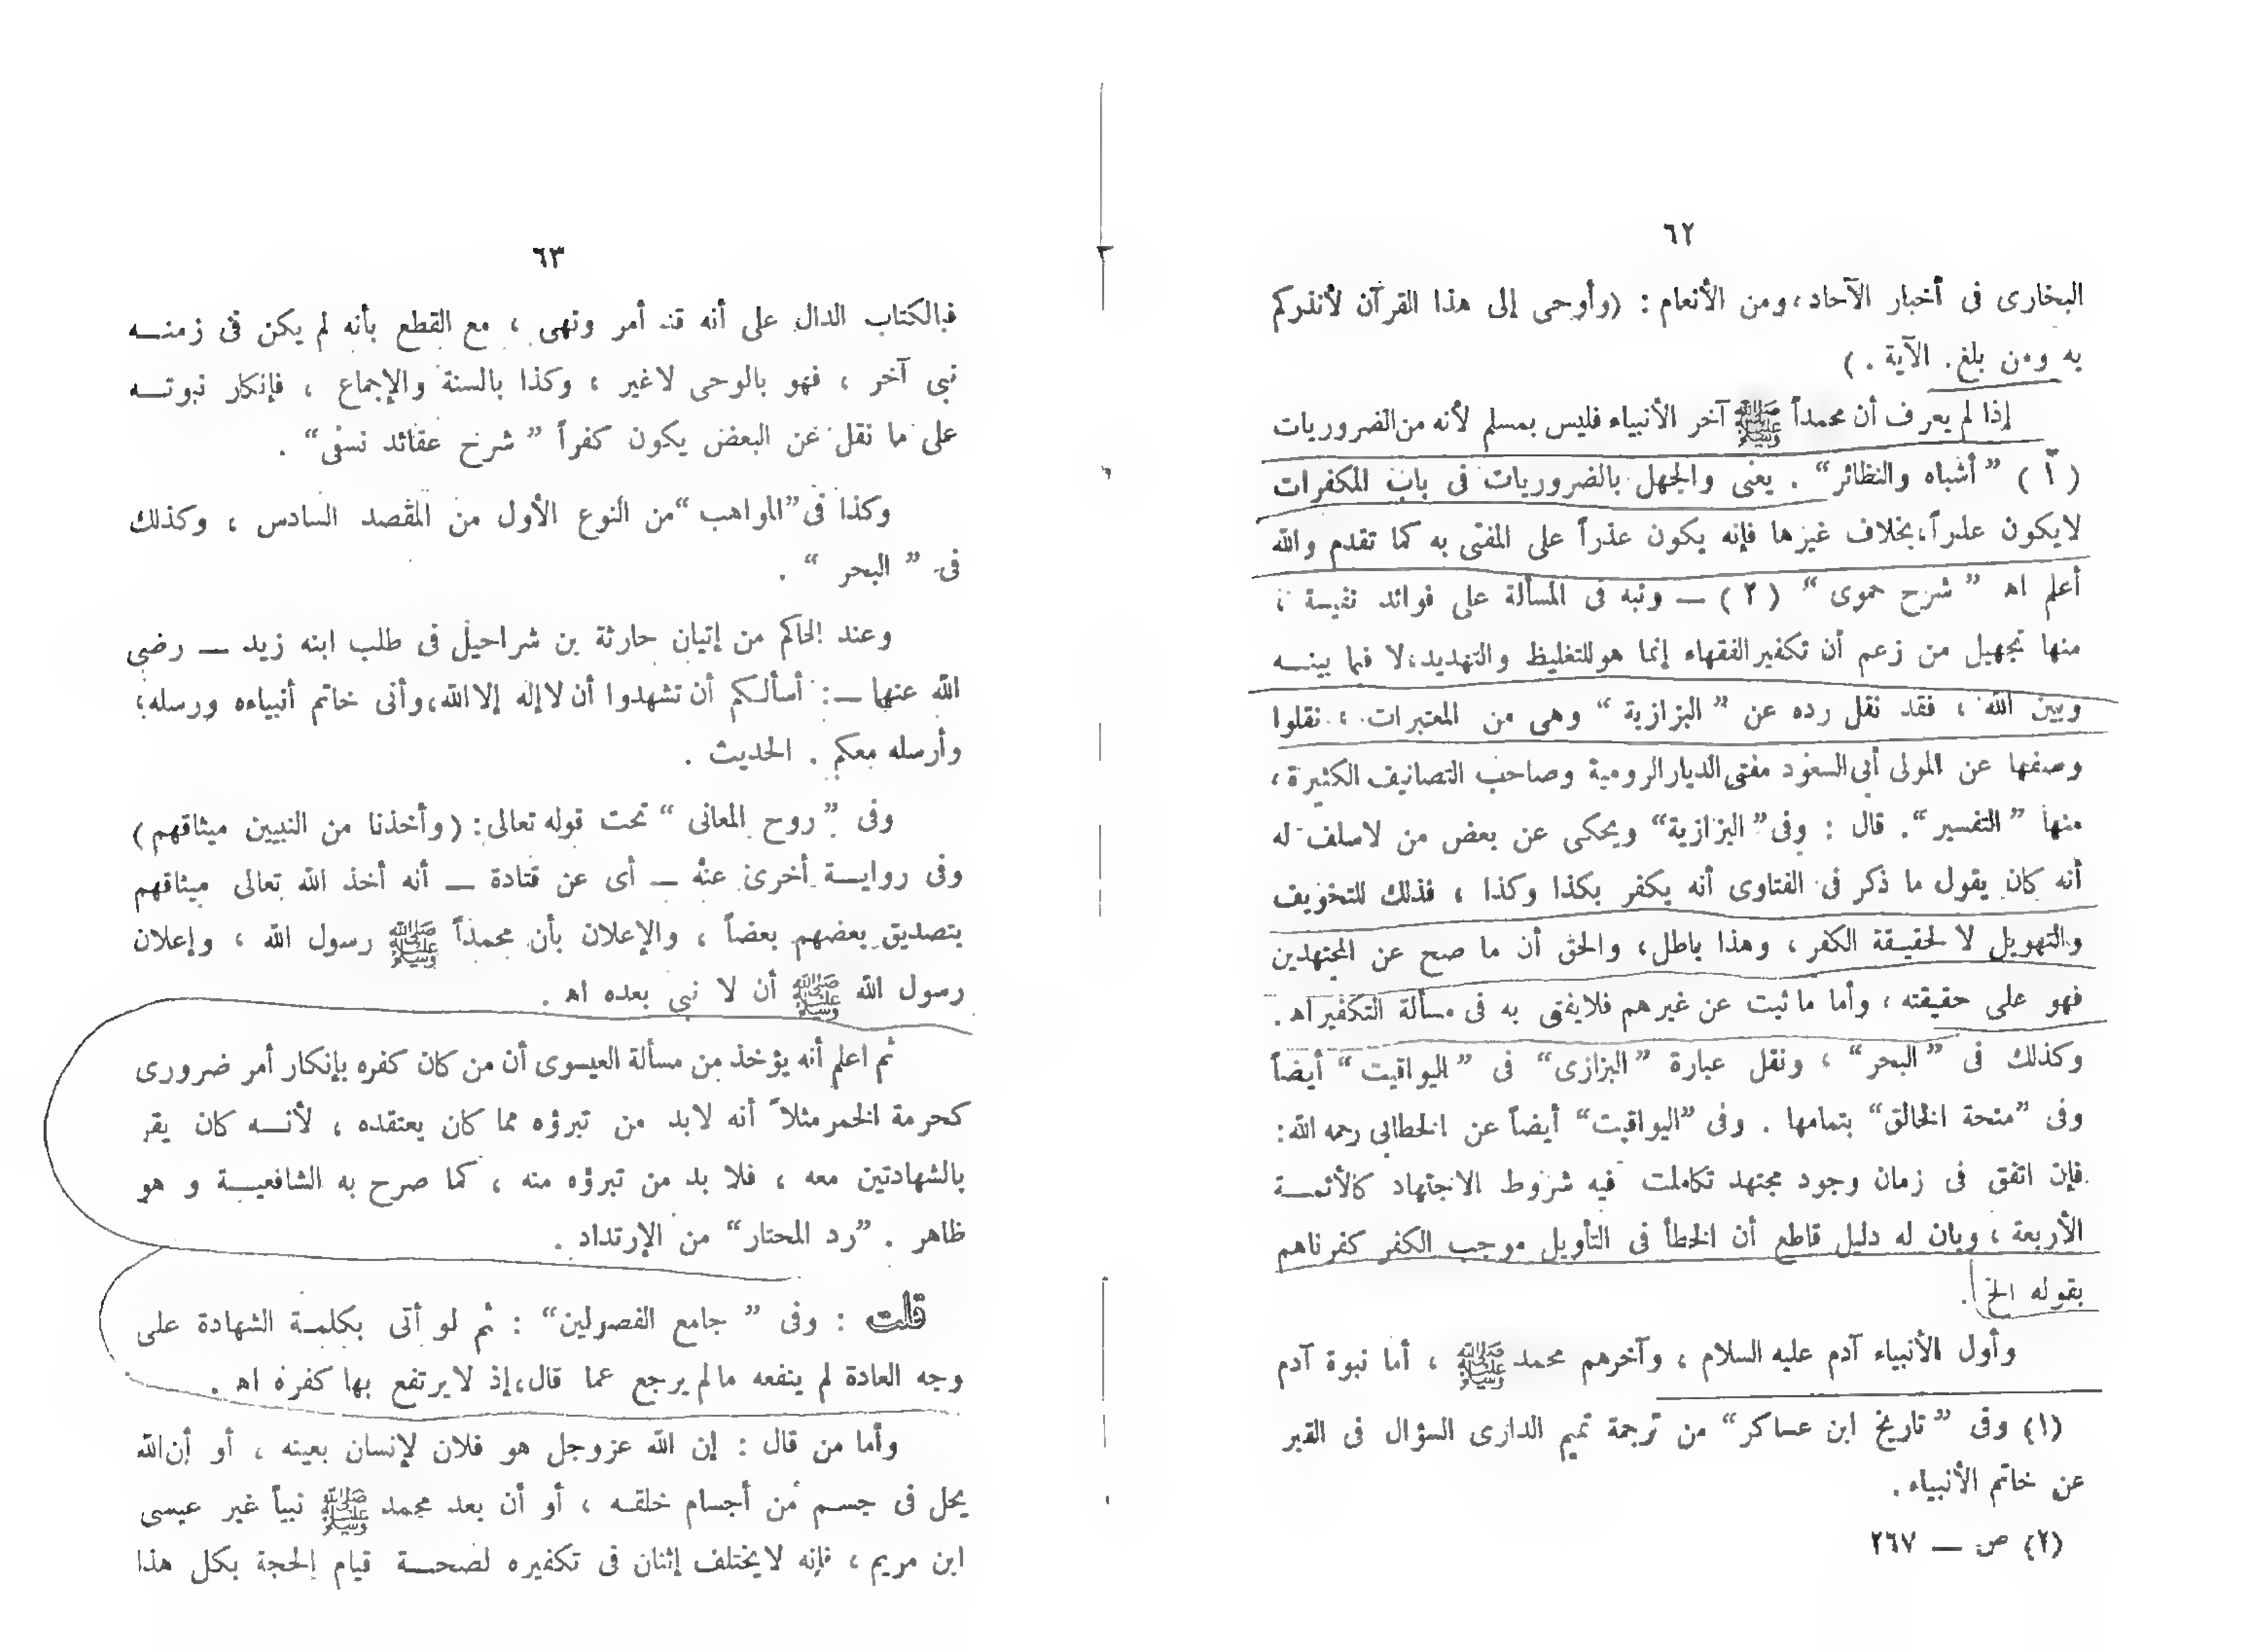 ٦٢
البخارى فى أخبار الآحاد، ومن الأنعام : (وأوحى إلى هذا القرآن لأنذركم
به ومن بلغ . الآية . )
إذا لم يعرف أن محمداً ﷺ آخر الأنبياء فليس بمسلم لأنه من الضروريات
(١) ”أشباه والنظائر“ . يعنى والجهل بالضروريات فى باب المكفرات
لايكون عذراً، بخلاف غيرها فإنه يكون عذراً على المفتى به كما تقدم والله
أعلم اه ”شرح حموى“ (٢) — ونبه فى المسألة على فوائد نفيسة ،
منها تجهيل من زعم أن تكفير الفقهاء إنما هو للتغليظ والتهديد، لا فيما بينه
وبين الله ، فقد نقل رده عن ”البزازية“ وهى من المعتبرات ، نقلوا
وصفها عن المولى أبى السعود مفتى الديار الرومية وصاحب التصانيف الكثيرة ،
منها ”التفسير“. قال : وفى ”البزازية“ ويحكى عن بعض من لاسلف له
أنه كان يقول ما ذكر فى الفتاوى أنه يكفر بكذا وكذا ، فذلك للتخويف
والتهويل لا لحقيقة الكفر ، وهذا باطل، والحق أن ما صح عن المجتهدين
فهو على حقيقته ، وأما ما ثبت عن غيرهم فلايفتى به فى مسألة التكفير اه .
وكذلك فى ”البحر“ ، ونقل عبارة ”البزازى“ فى ”اليواقيت“ أيضاً
وفى ”منحة الخالق“ بتمامها . وفى ”اليواقيت“ أيضاً عن الخطابى رحمه الله :
فإن اتفق فى زمان وجود مجتهد تكاملت فيه شروط الاجتهاد كالأئمة
الأربعة ، وبان له دليل قاطع أن الخطأ فى التأويل موجب الكفر كفرناهم
بقوله الخ .
وأول الأنبياء آدم عليه السلام ، وآخرهم محمد ﷺ ، أما نبوة آدم
(١) وفى ”تاريخ ابن عساكر“ من ترجمة تميم الدارى السؤال فى القبر
عن خاتم الأنبياء .
(٢) ص — ٢٦٧
٦٣
فبالكتاب الدال على أنه قد أمر ونهى ، مع القطع بأنه لم يكن فى زمنه
نبى آخر ، فهو بالوحى لاغير ، وكذا بالسنة والإجماع ، فإنكار نبوته
على ما نقل عن البعض يكون كفراً ”شرح عقائد نسفى“ .
وكذا فى ”المواهب“ من النوع الأول من المقصد السادس ، وكذلك
فى ”البحر“ .
وعند الحاكم من إتيان حارثة بن شراحيل فى طلب ابنه زيد — رضى
الله عنها — : أسألكم أن تشهدوا أن لا إله إلا الله، وأنى خاتم أنبياءه ورسله؛
وأرسله معكم . الحديث .
وفى ”روح المعانى“ تحت قوله تعالى : (وأخذنا من النبيين ميثاقهم)
وفى رواية أخرى عنه — أى عن قتادة — أنه أخذ الله تعالى ميثاقهم
بتصديق بعضهم بعضاً ، والإعلان بأن محمداً ﷺ رسول الله ، وإعلان
رسول الله ﷺ أن لا نبى بعده اه .
ثم اعلم أنه يؤخذ من مسألة العيسوى أن من كان كفره بإنكار أمر ضرورى
كحرمة الخمر مثلاً أنه لابد من تبرؤه مما كان يعتقده ، لأنه كان يقر
بالشهادتين معه ، فلا بد من تبرؤه منه ، كما صرح به الشافعية و هو
ظاهر . ”رد المحتار“ من الإرتداد .
قلت : وفى ”جامع الفصولين“ : ثم لو أتى بكلمة الشهادة على
وجه العادة لم ينفعه مالم يرجع عما قال، إذ لايرتفع بها كفره اه .
وأما من قال : إن الله عزوجل هو فلان لإنسان بعينه ، أو أن الله
يحل فى جسم من أجسام خلقه ، أو أن بعد محمد ﷺ نبياً غير عيسى
ابن مريم ، فإنه لايختلف إثنان فى تكفيره لصحة قيام الحجة بكل هذا